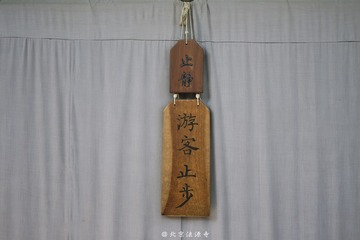 止静
游客止步
@北京法源寺